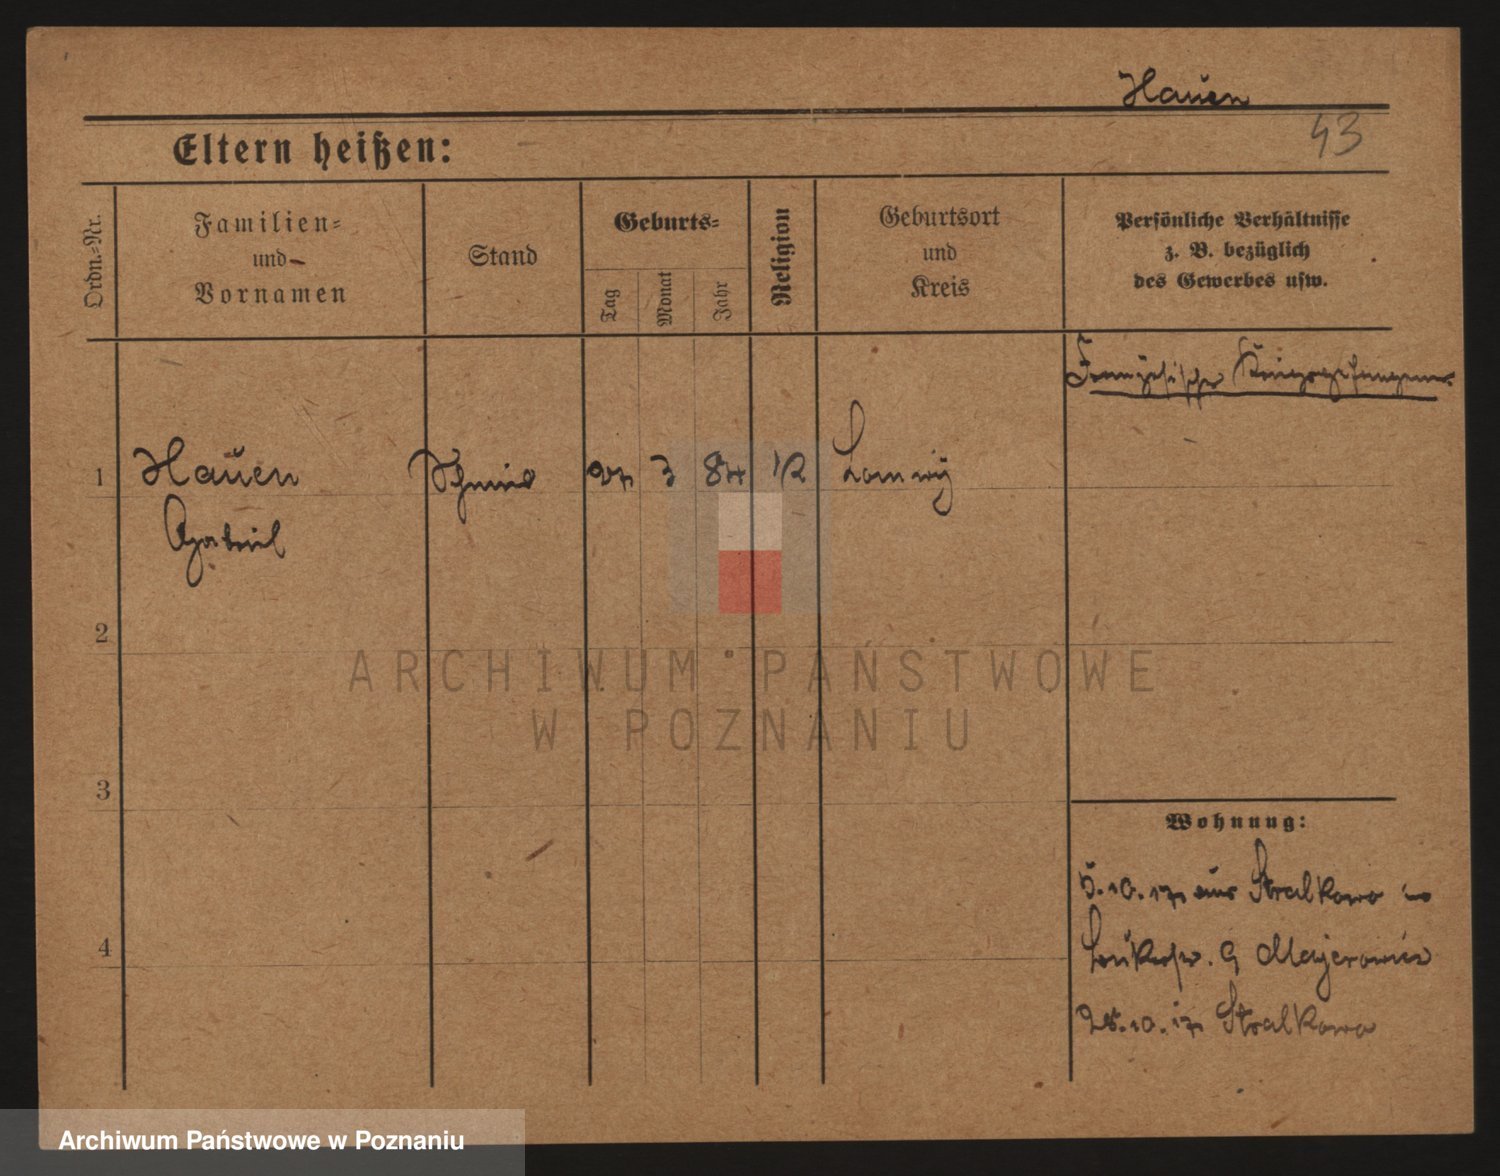 Hauen
43
Eltern heißen:
Ordn.-Nr.
Familien-
und
Vornamen
Stand
Geburts-
Tag
Monat
Jahr
Religion
Geburtsort
und
Kreis
Persönliche Verhältnisse
z. B. bezüglich
des Gewerbes usw.
Französischer Kriegsgefangener
1
Hauen
Gabriel
Schmied
27
3
84
K
2
ARCHIWUM PAŃSTWOWE
W POZNANIU
3
Wohnung:
5.10.17 aus Stralkowo
4
Majerowicz
25.10.17 Stralkowo
Archiwum Państwowe w Poznaniu